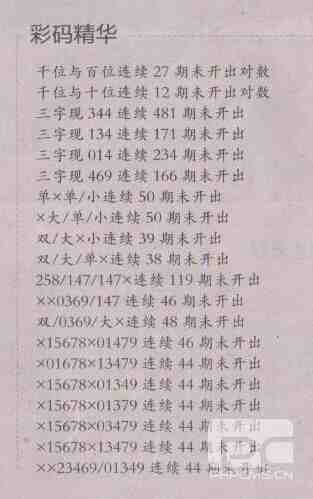 彩码精华
千位与百位连续 27 期未开出对数
千位与十位连续 12 期未开出对数
三字现 344 连续 481 期未开出
三字现 134 连续 171 期未开出
三字现 014 连续 234 期未开出
三字现 469 连续 166 期未开出
单×单/小连续 50 期未开出
×大/单/小连续 50 期未开出
双/大×小连续 39 期未开出
双/大/单×连续 38 期未开出
258/147/147×连续 119 期未开出
××0369/147 连续 46 期未开出
双/0369/大×连续 48 期未开出
×15678×01479 连续 46 期未开出
×01678×13479 连续 44 期未开出
×15678×01349 连续 44 期未开出
×15678×01379 连续 44 期未开出
×15678×03479 连续 44 期未开出
×15678×13479 连续 44 期未开出
××23469/01349 连续 44 期未开出
PHPCMS.CN